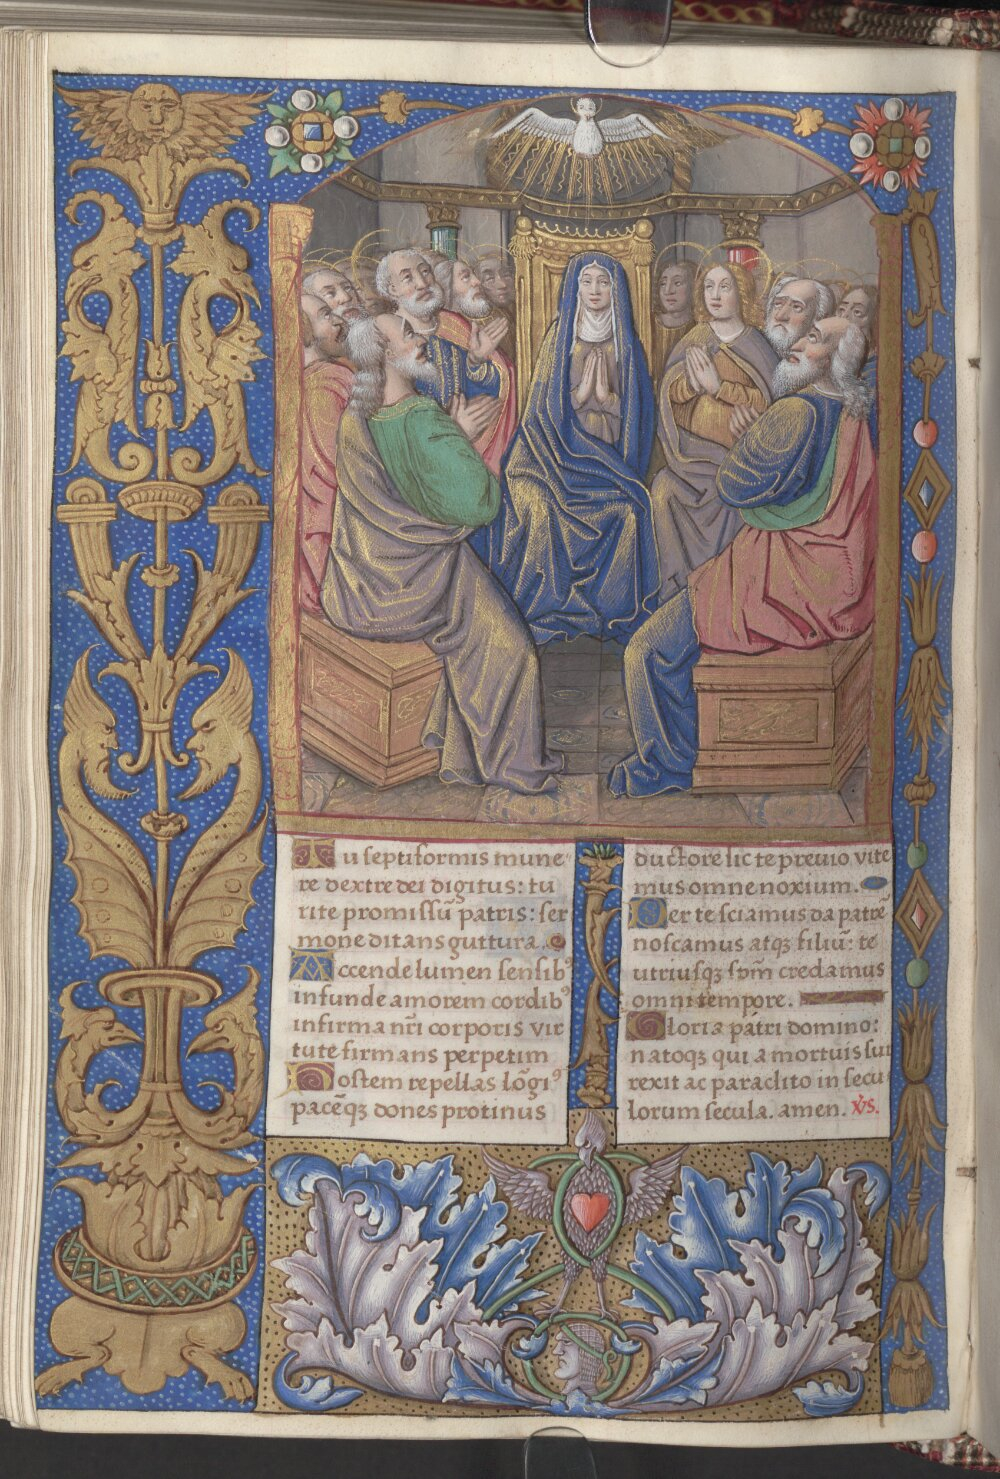 Tu septiformis mune
re dextre dei digitus: tu
rite promissũ patris: ser
mone ditans guttura.
Accende lumen sensibꝰ
infunde amorem cordibꝰ
infirma nr̃i corporis vir
tute firmans perpetim
Hostem repellas lõgiꝰ
pacẽqꝫ dones protinus
ductore sic te previo vite
mus omne noxium.
Per te sciamus da patrẽ
noscamus atqꝫ filiũ: te
utriusqꝫ sp̃m credamus
omni tempore.
Gloria patri domino:
natoqꝫ qui a mortuis sur
rexit ac paraclito in secu
lorum secula. amen. v̾s.